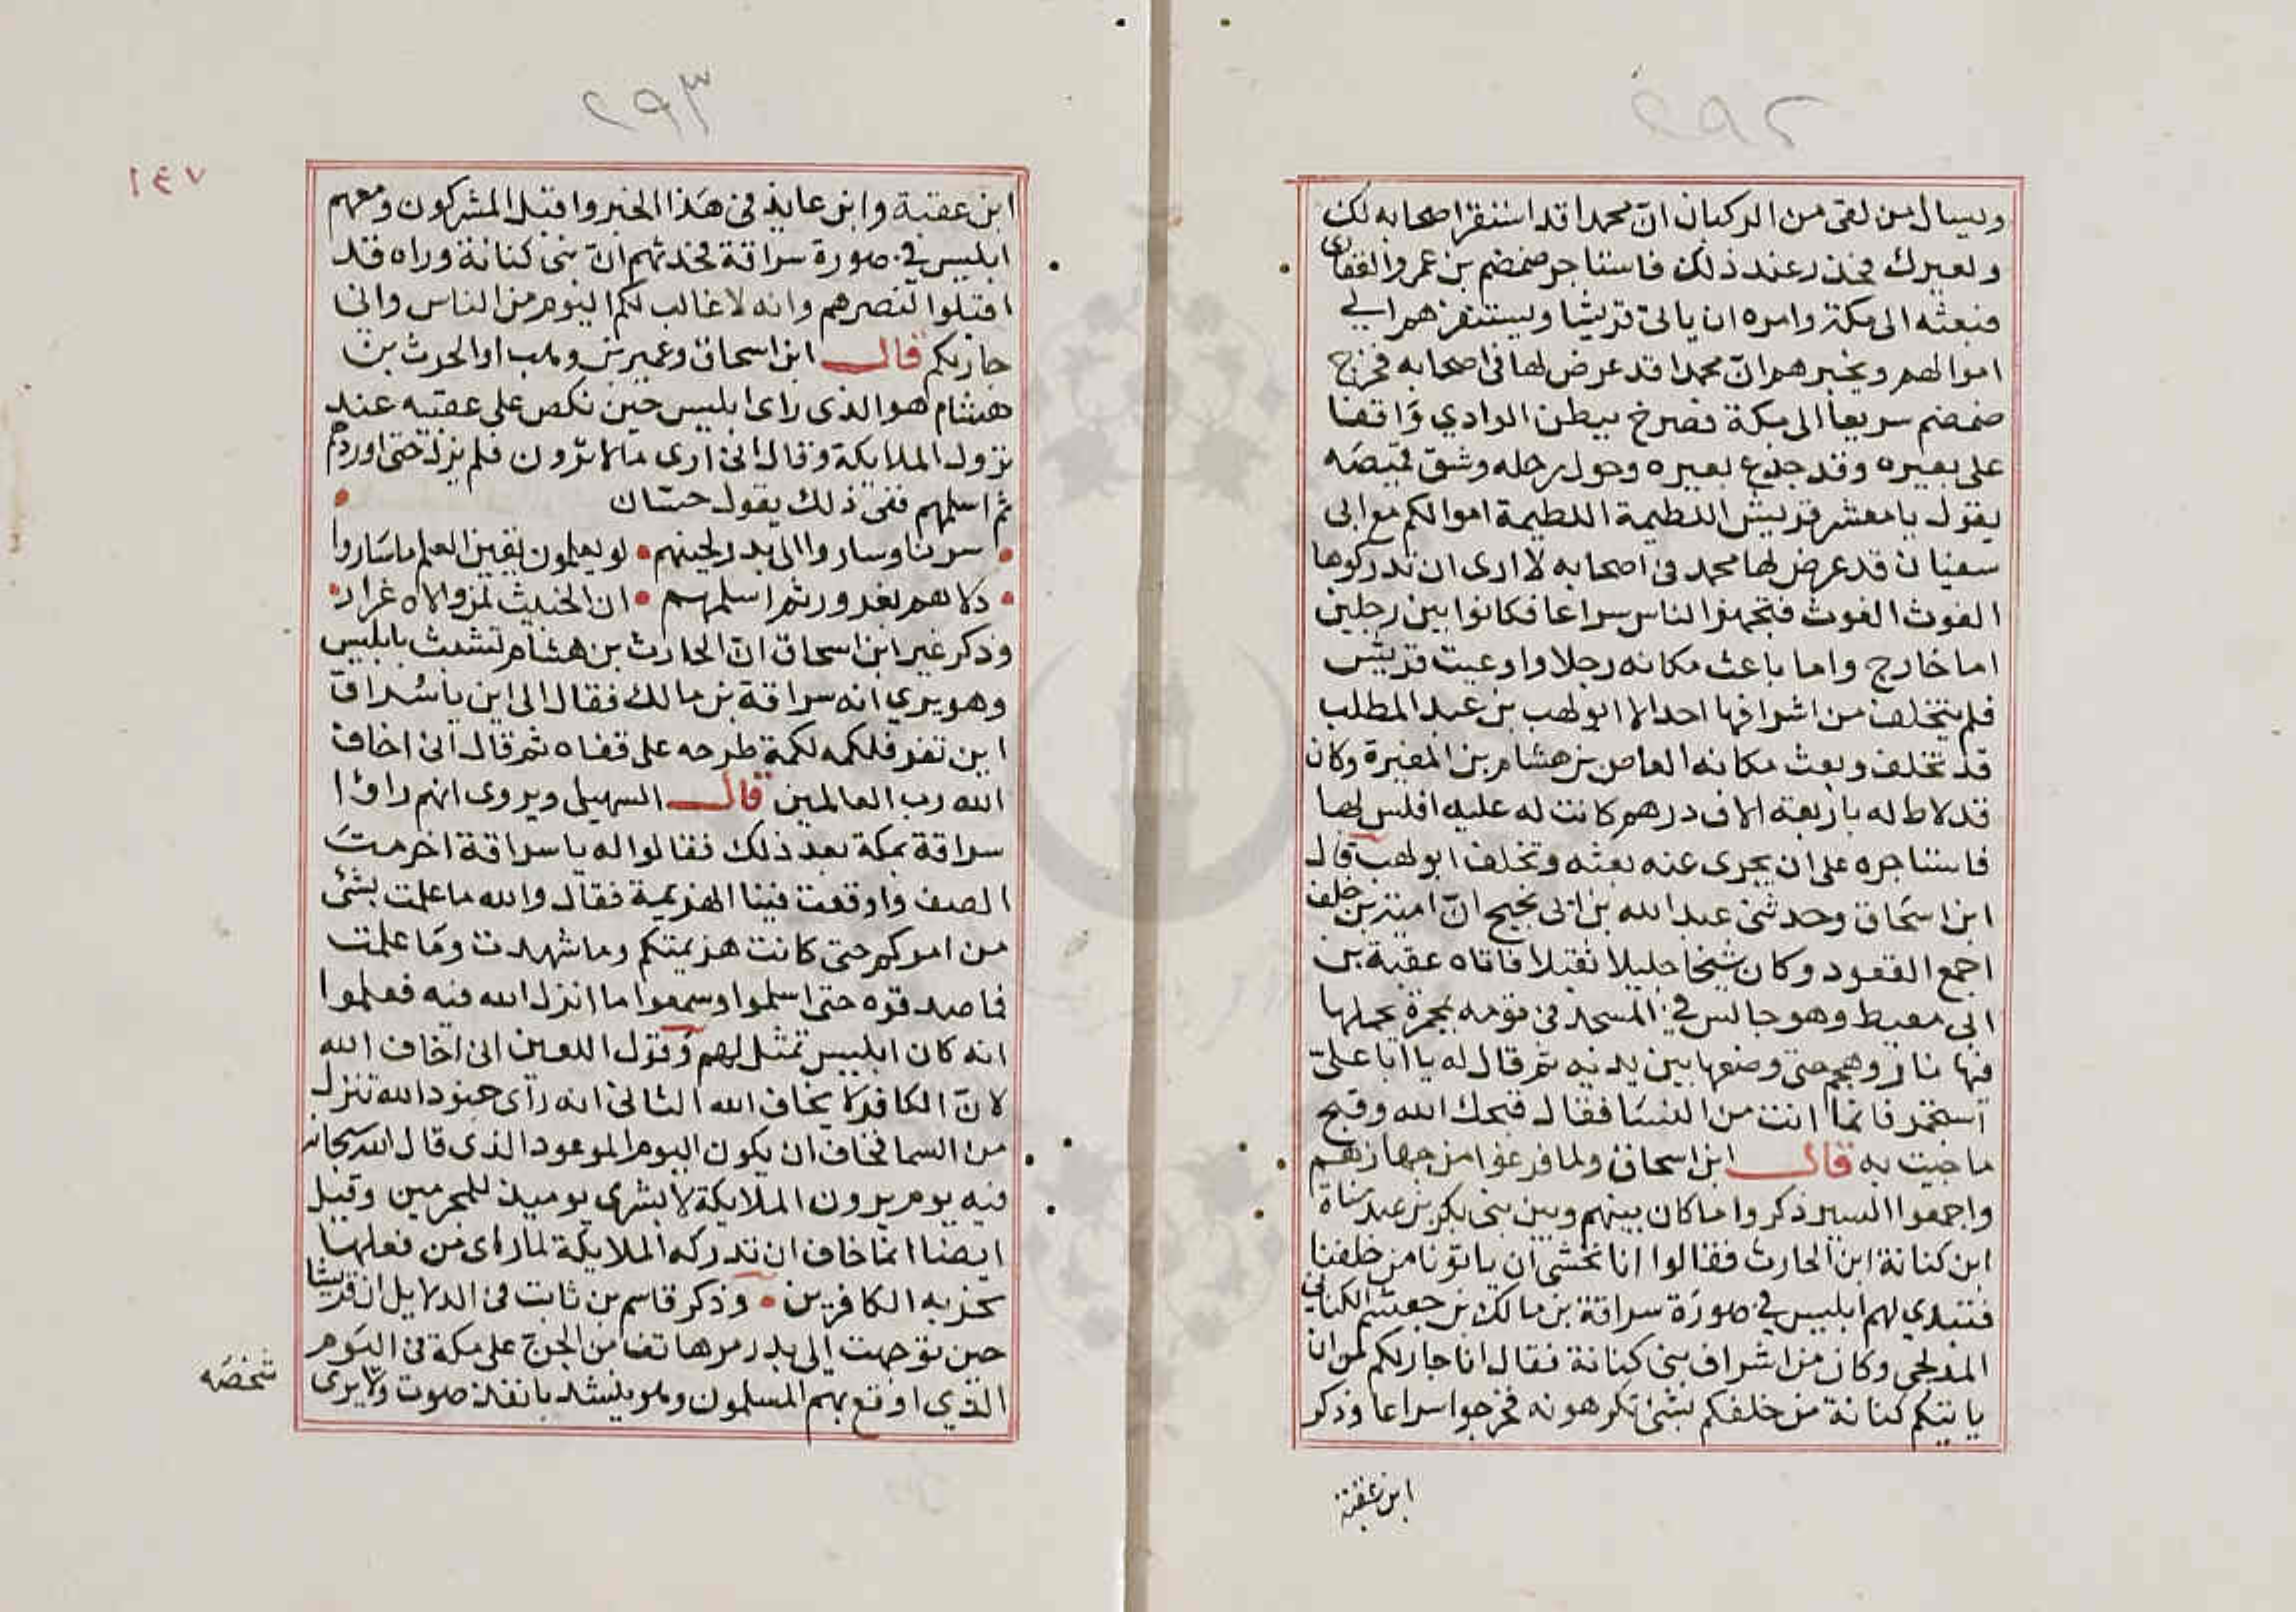 ٢٩٢
ويسال من لقى من الركبان انّ محمدا قد استنفر اصحابه لك
ولعيرك فحذر عند ذلك فاستاجر ضمضم بن عمرو الغفارى
فبعثه الى مكة وامره ان ياتى قريشا ويستنفرهم الي
اموالهم ويخبرهم انّ محمدا قد عرض لها فى اصحابه فخرج
ضمضم سريعا الى مكة فصرخ ببطن الوادي واقفا
على بعيره وقد جذع بعيره وحول رحله وشق قميصه
يقول يا معشر قريش اللطيمة اللطيمة اموالكم مع ابى
سفيان قد عرض لها محمد فى اصحابه لا ارى ان تدركوها
الغوث الغوث فتجهز الناس سراعا فكانوا بين رجلين
اما خارج واما باعث مكانه رجلا واوعبت قريش
فلم يتخلف من اشرافها احد الا ابو لهب بن عبد المطلب
قد تخلف وبعث مكانه العاص بن هشام بن المغيرة وكان
قد لاط له باربعة الاف درهم كانت له عليه افلس لها
فاستاجره على ان يجرى عنه بعثه وتخلف ابو لهب قال
ابن اسحاق وحدثنى عبد الله بن ابى نجيح انّ امية بن خلف
اجمع القعود وكان شيخا جليلا ثقيلا فاتاه عقبة بن
ابى معيط وهو جالس في المسجد فى قومه بمجمرة يحملها
فيها نار ومجمر حتى وضعها بين يديه ثم قال له يا ابا علىّ
استجمر فانما انت من النسا فقال قبحك الله وقبح
ما جيت به قال ابن اسحاق ولما فرغوا من جهازهم
واجمعوا السير ذكروا ما كان بينهم وبين بنى بكر بن عبد مناة
ابن كنانة ابن الحارث فقالوا انا نخشى ان ياتونا من خلفنا
فتبدي لهم ابليس في صورة سراقة بن مالك بن جعشم الكنانى
المدلجى وكان من اشراف بنى كنانة فقال انا جار لكم من ان
ياتيكم كنانة من خلفكم بشئ تكرهونه فخرجوا سراعا وذكر
ابن عقبة
٢٩٣
١٤٧
ابن عقبة وابن عايذ فى هذا الخبر واقبل المشركون ومعهم
ابليس في صورة سراقة فحدثهم انّ بنى كنانة وراه قد
اقبلوا لنصرهم وانه لا غالب لكم اليوم من الناس وانى
جار لكم قال ابن اسحاق وعمير بن وهب او الحرث بن
هشام هو الذى راى ابليس حين نكص على عقبيه عند
نزول الملايكة وقال انى ارى ما لا ترون فلم يزل حتى اوردهم
ثم اسلمهم ففى ذلك يقول حسّان
سرنا وساروا الى بدر لحينهم • لو يعلمون يقين العلم ما ساروا
دلاهم بغرور ثم اسلمهم • ان الخبيث لمن والاه غرار
وذكر غير ابن اسحاق انّ الحارث بن هشام تشبث بابليس
وهو يري انه سراقة بن مالك فقال الى اين يا سُراق
اين تفر فلكمه لكمة طرحه على قفاه ثم قال انى اخاف
الله رب العالمين قال السهيلى ويروى انهم راوا
سراقة بمكة بعد ذلك فقالوا له يا سراقة اخرمت
الصف واوقعت فينا الهزيمة فقال والله ما علمت بشئ
من امركم حتى كانت هزيمتكم وما شهدت وما علمت
فما صدقوه حتى اسلموا وسمعوا ما انزل الله فيه فعلموا
انه كان ابليس تمثل لهم وقول اللعين انى اخاف الله
لانّ الكافر لا يخاف الله الثانى انه رآى جنود الله تنزل
من السما فخاف ان يكون اليوم الموعود الذى قال الله سبحانه
فيه يوم يرون الملايكة لا بشرى يوميذ للمجرمين وقيل
ايضا انما خاف ان تدركه الملايكة لما راى من فعلها
بحزبه الكافرين • وذكر قاسم بن ثابت فى الدلايل ان قريشا
حين توجهت إلى بدر مر هاتف من الجن على مكة فى اليوم
الذي اوقع بهم المسلمون وهو ينشد بانفذ صوت ولا يرى
شخصه